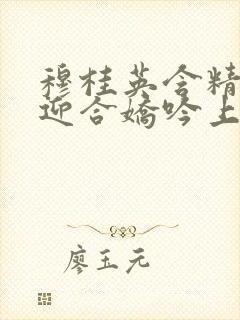 穆桂英含精
迎合娇吟上
廖玉元